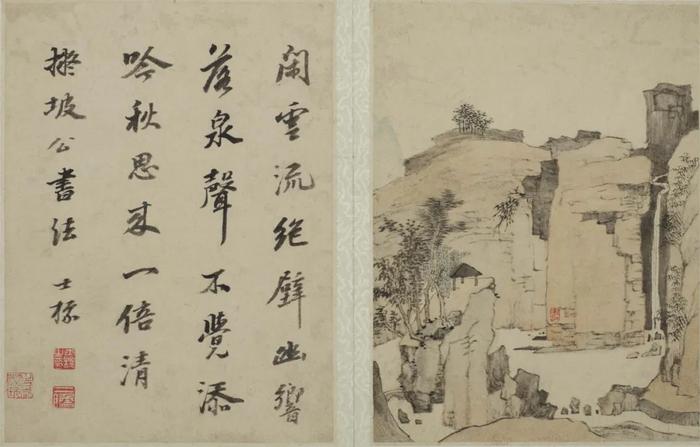 閑雲流絕壁幽響
落泉聲不覺添
吟秋思来一倍清
擬坡公書法 士標